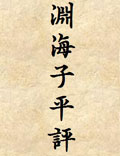 淵海子平評